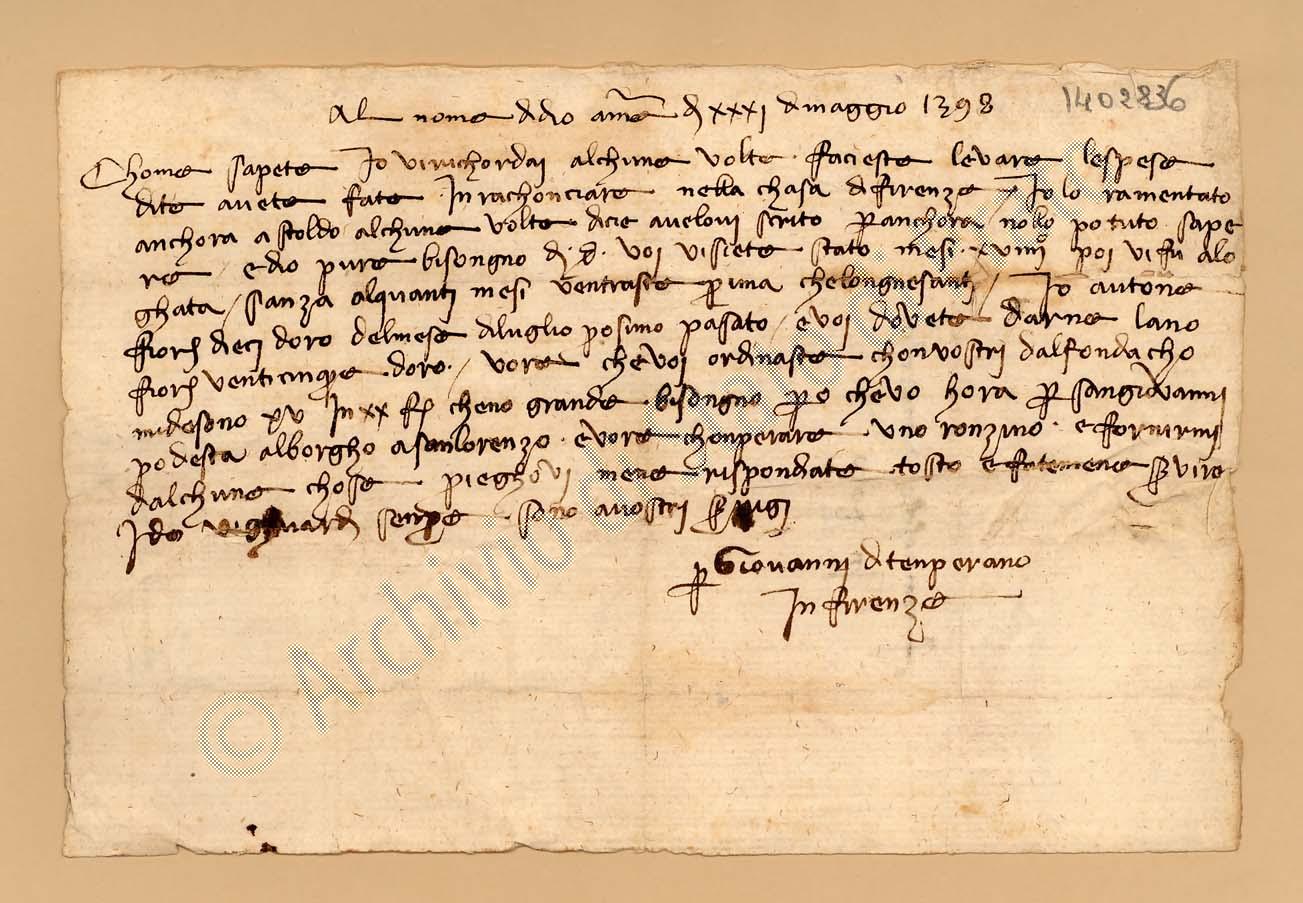 Al nome didio ame dì xxxi di maggio 1398
1402836
Chome sapete Io vi richordai alchune volte facieste levare lespese
dite avete fate In rachonciare nella chasa di firenze / Io lo ramentato
anchora a stoldo alchune volte dicie avelovi scrito per anchora nollo potuto sape
re / edio pure bisongno di voi visiete stato mesi xviiii poi vi fu alo
ghata / sanza alquanti mesi ventraste prima chelongnesanti / Io autone
fior dieci doro delmese diluglio prosimo pasato / e voi dovete darne lano
fior venticinque doro / vore che voi ordinaste chon vostri dalfondacho
mi desono xv In xx f cheno grande bisongno pero chevo hora per sangiovanni
podesta alborgho a sanlorenzo e vore chonperare uno ronzino e fornirmi
dalchune chose priegho vi mene rispondiate tosto e fatemene servire
Idio vi ghuardi senpre sono a vostri servigi
per Giovanni di tenperano
In firenze
© Archivio di Stato di